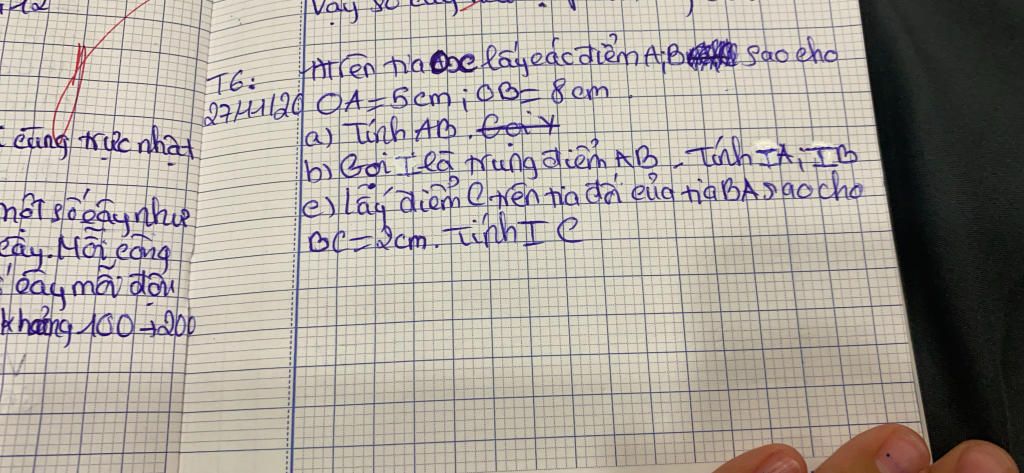 Vậy số cây
T6:
27/11/20
Trên tia Ox lấy các điểm A,B sao cho
OA = 5cm; OB = 8cm.
a) Tính AB.
b) Gọi I là trung điểm AB. Tính IA, IB
c) Lấy điểm C trên tia đối của tia BA sao cho
BC = 2cm. Tính IC
cùng trực nhật
một số cây như
cây. Mỗi công
cây mỗi đội
khoảng 100 → 200